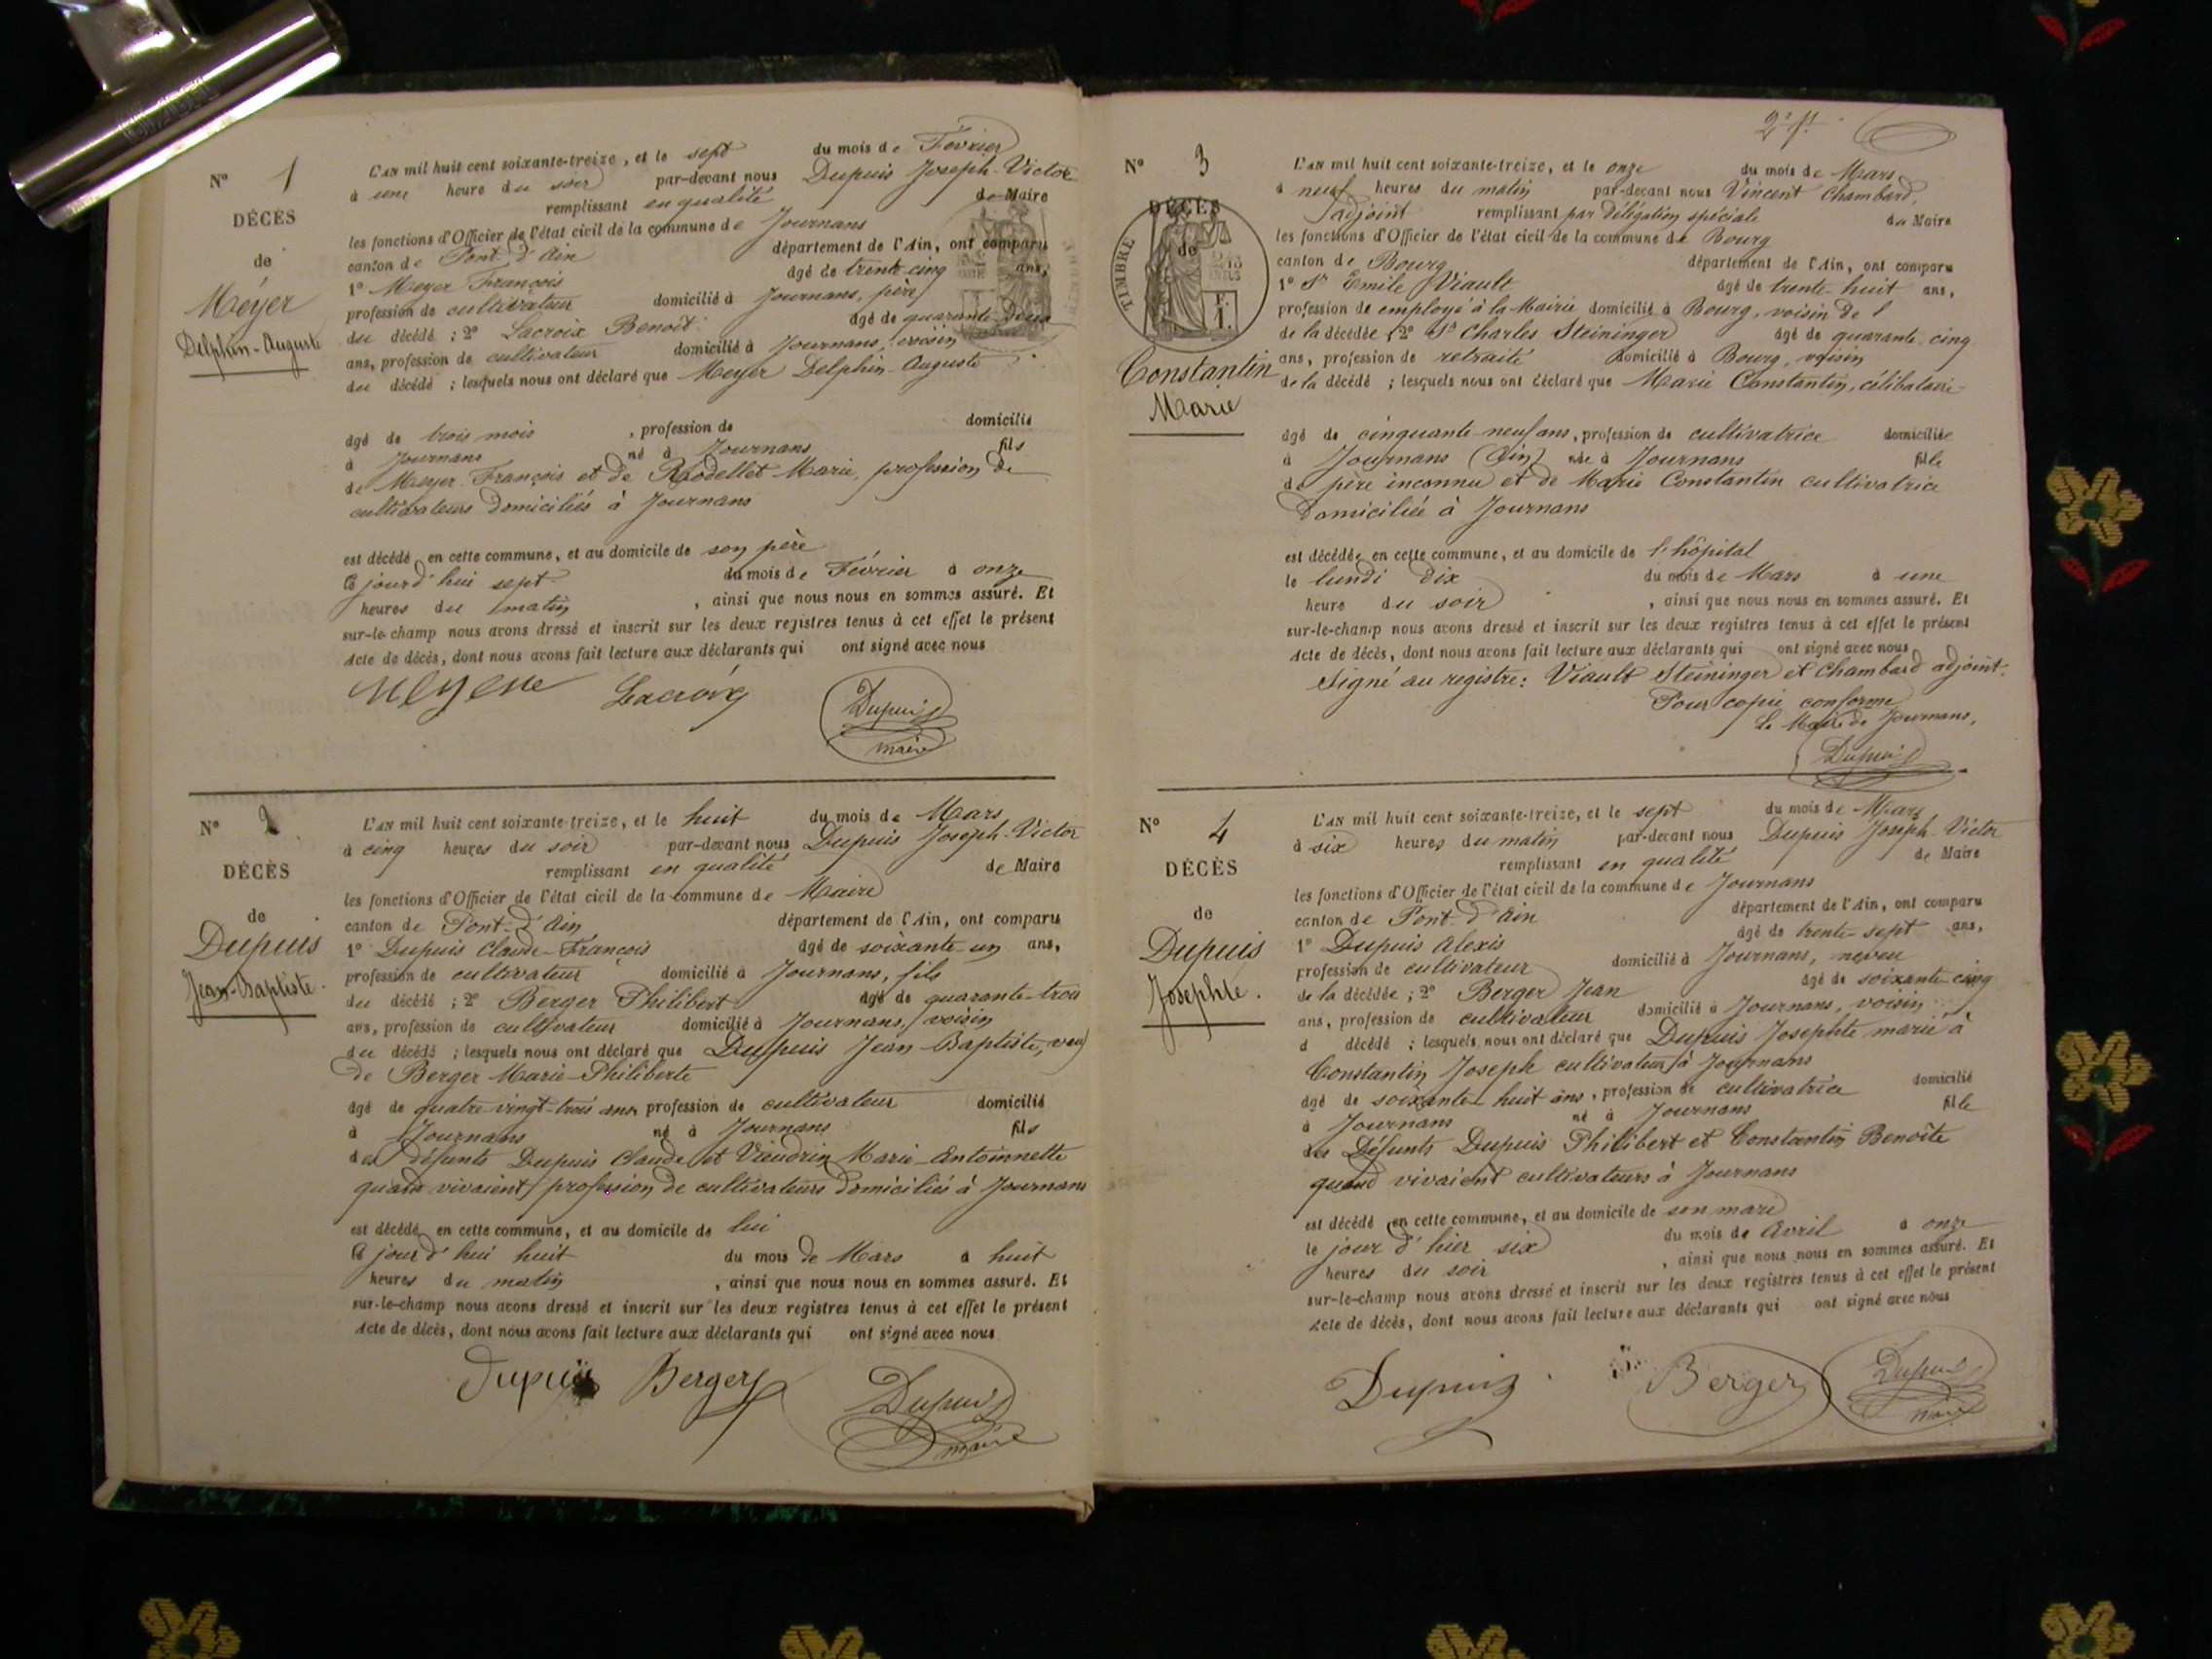 N° 1
DÉCÈS
de
Meyer
Delphin-Auguste
L'AN mil huit cent soixante-treize, et le sept du mois de Février
à une heure du soir par-devant nous Dupuis Joseph-Victor
remplissant en qualité de Maire
les fonctions d'Officier de l'état civil de la commune de Journans
canton de Pont-d'Ain département de l'Ain, ont comparu
1° Meyer François âgé de trente-cinq ans,
profession de cultivateur domicilié à Journans, père
du décédé ; 2° Lacroix Benoît âgé de quarante-deux
ans, profession de cultivateur domicilié à Journans, voisin
du décédé ; lesquels nous ont déclaré que Meyer Delphin-Auguste
âgé de trois mois , profession de domicilié
à Journans né à Journans fils
de Meyer François et de Rodellet Marie, profession de
cultivateurs domiciliés à Journans
est décédé en cette commune, et au domicile de son père
ce jourd'hui sept du mois de Février à onze
heures du matin , ainsi que nous nous en sommes assuré. Et
sur-le-champ nous avons dressé et inscrit sur les deux registres tenus à cet effet le présent
Acte de décès, dont nous avons fait lecture aux déclarants qui ont signé avec nous
Lacroix Dupuis
maire
N° 2
DÉCÈS
de
Dupuis
Jean-Baptiste.
L'AN mil huit cent soixante-treize, et le huit du mois de Mars
à cinq heures du soir par-devant nous Dupuis Joseph-Victor
remplissant en qualité de Maire
les fonctions d'Officier de l'état civil de la commune de Maire
canton de Pont-d'Ain département de l'Ain, ont comparu
1° Dupuis Claude-François âgé de soixante-un ans,
profession de cultivateur domicilié à Journans, fils
du décédé ; 2° Berger Philibert âgé de quarante-trois
ans, profession de cultivateur domicilié à Journans, voisin
du décédé ; lesquels nous ont déclaré que Dupuis Jean-Baptiste, veuf
de Berger Marie-Philiberte
âgé de quatre-vingt-trois ans profession de cultivateur domicilié
à Journans né à Journans fils
des défunts Dupuis Claude et Vaudrin Marie-Antoinnette
quand vivaient profession de cultivateurs domiciliés à Journans
est décédé en cette commune, et au domicile de lui
ce jourd'hui huit du mois de Mars à huit
heures du matin , ainsi que nous nous en sommes assuré. Et
sur-le-champ nous avons dressé et inscrit sur les deux registres tenus à cet effet le présent
Acte de décès, dont nous avons fait lecture aux déclarants qui ont signé avec nous
Dupuis Berger Dupuis
maire
N° 3
DÉCÈS
de
TIMBRE
Constantin
Marie
L'AN mil huit cent soixante-treize, et le onze du mois de Mars
à neuf heures du matin par-devant nous Vincent Chambard,
adjoint remplissant par délégation spéciale du Maire
les fonctions d'Officier de l'état civil de la commune de Bourg
canton de Bourg département de l'Ain, ont comparu
1° Sr Emile Viault âgé de trente-huit ans,
profession de employé à la Mairie domicilié à Bourg, voisin de l
de la décédée ; 2° Sr Charles Steininger âgé de quarante-cinq
ans, profession de retraité domicilié à Bourg, voisin
de la décédé ; lesquels nous ont déclaré que Marie Constantin, célibataire
âgé de cinquante-neuf ans, profession de cultivatrice domiciliée
à Journans (Ain) née à Journans fille
de père inconnu et de Marie Constantin cultivatrice
domiciliée à Journans
est décédée en cette commune, et au domicile de l'hôpital
le lundi dix du mois de Mars à une
heure du soir , ainsi que nous nous en sommes assuré. Et
sur-le-champ nous avons dressé et inscrit sur les deux registres tenus à cet effet le présent
Acte de décès, dont nous avons fait lecture aux déclarants qui ont signé avec nous
Signé au registre: Viault Steininger et Chambard adjoint.
Pour copie conforme
Le Maire de Journans,
Dupuis
N° 4
DÉCÈS
de
Dupuis
Josephte.
L'AN mil huit cent soixante-treize, et le sept du mois de Mars
à six heures du matin par-devant nous Dupuis Joseph-Victor
remplissant en qualité de Maire
les fonctions d'Officier de l'état civil de la commune de Journans
canton de Pont-d'Ain département de l'Ain, ont comparu
1° Dupuis Alexis âgé de trente-sept ans,
profession de cultivateur domicilié à Journans, neveu
de la décédée ; 2° Berger Jean âgé de soixante-cinq
ans, profession de cultivateur domicilié à Journans, voisin
d décédé ; lesquels nous ont déclaré que Dupuis Josephte marié à
Constantin Joseph cultivateur à Journans
âgé de soixante-huit ans, profession de cultivatrice domicilié
à Journans né à Journans fille
des Défunts Dupuis Philibert et Constantin Benoîte
quand vivaient cultivateurs à Journans
est décédé en cette commune, et au domicile de son mari
le jour d'hier six du mois de Avril à onze
heures du soir , ainsi que nous nous en sommes assuré. Et
sur-le-champ nous avons dressé et inscrit sur les deux registres tenus à cet effet le présent
Acte de décès, dont nous avons fait lecture aux déclarants qui ont signé avec nous
Dupuis Berger Dupuis
maire